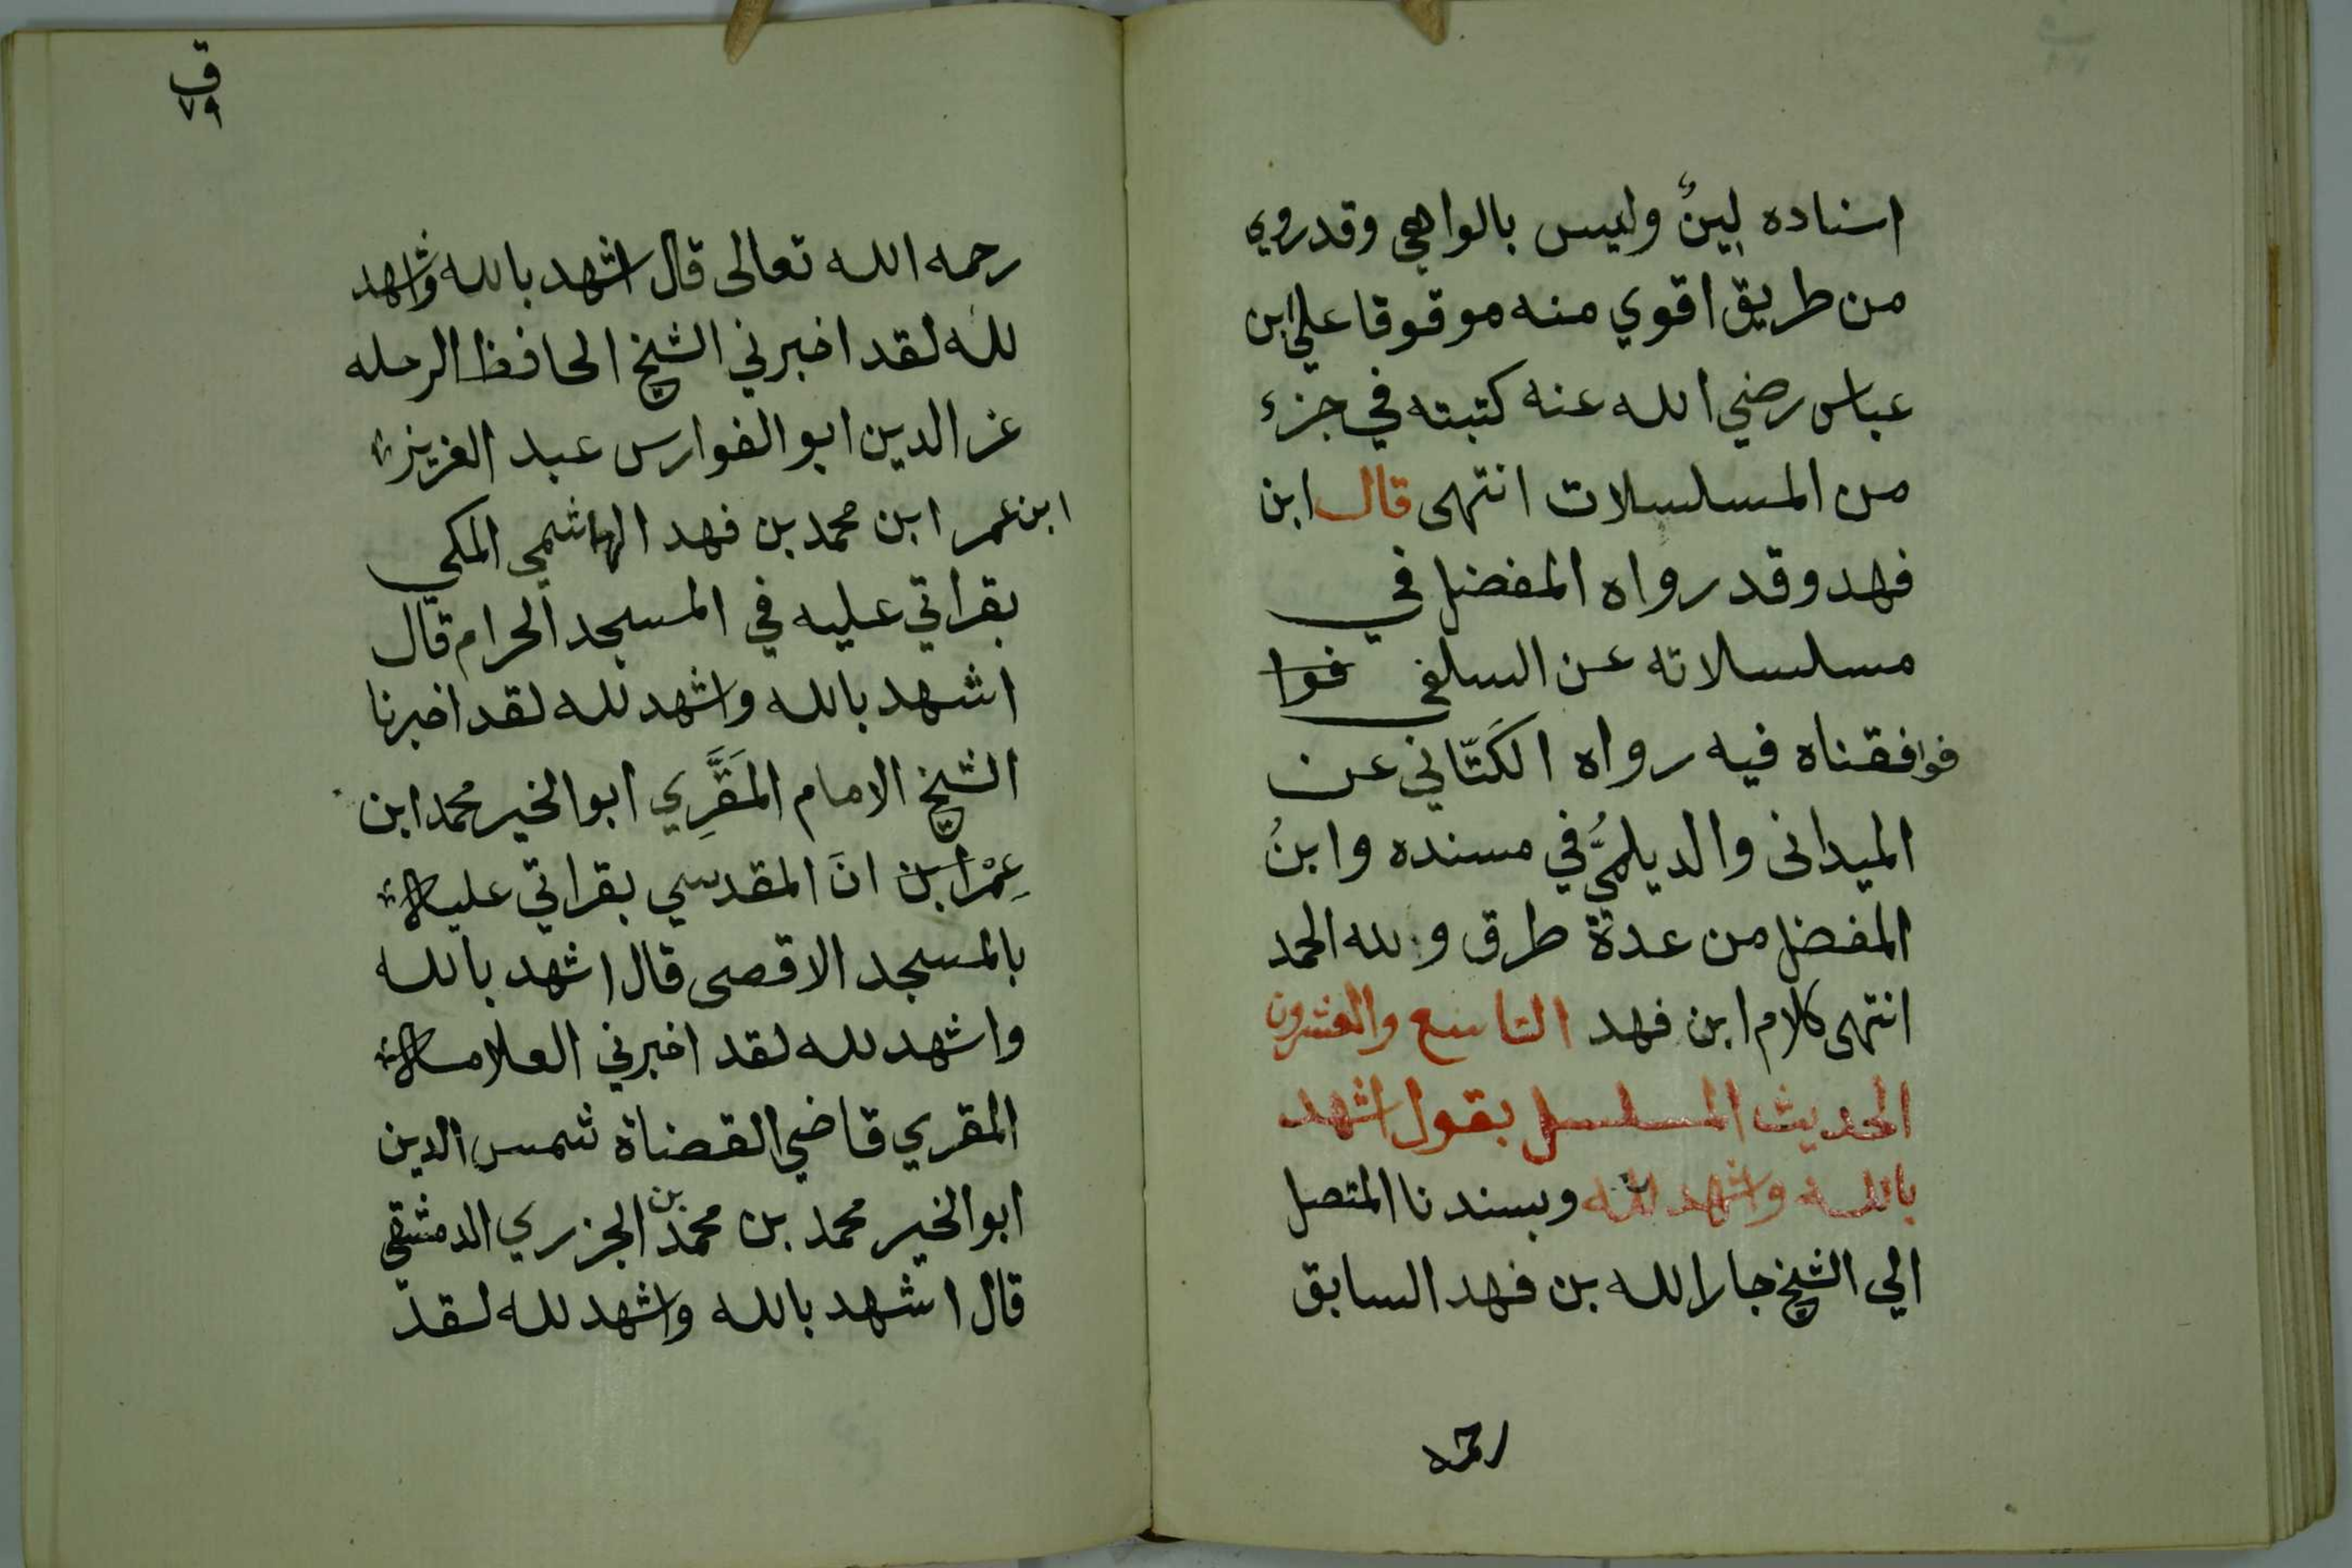 اسناده لينٌ وليس بالواهي وقدروي
من طريق اقوي منه موقوفا علي ابن
عباس رضي الله عنه كتبته في جزء
من المسلسلات انتهى قال ابن
فهد وقد رواه المفضل في
مسلسلاته عن السلفي فوا
فوافقناه فيه رواه الكَتّاني عن
الميدانى والديلميُّ في مسنده وابنُ
المفضل من عدة طرق ولله الحمد
انتهى كلام ابن فهد التاسع والعشرون
الحديث المسلسل بقول اشهد
بالله واشهد لله وبسندنا المتصل
الي الشيخ جار الله بن فهد السابق
رحمه
ق
٧٩
رحمه الله تعالى قال اشهد بالله واشهد
لله لقد اخبرني الشيخ الحافظ الرحله
عز الدين ابو الفوارس عبد العزيز
ابن عمر ابن محمد بن فهد الهاشمي المكي
بقراتي عليه في المسجد الحرام قال
اشهد بالله واشهد لله لقد اخبرنا
الشيخ الامام المَقَّرِي ابو الخير محمد ابن
عِمْرابن انَ المقدسي بقراتي عليه
بالمسجد الاقصى قال اشهد بالله
واشهد لله لقد اخبرني العلامه
المقري قاضي القضاة شمس الدين
ابو الخير محمد بن محمد بن الجزري الدمشقي
قال اشهد بالله واشهد لله لقد